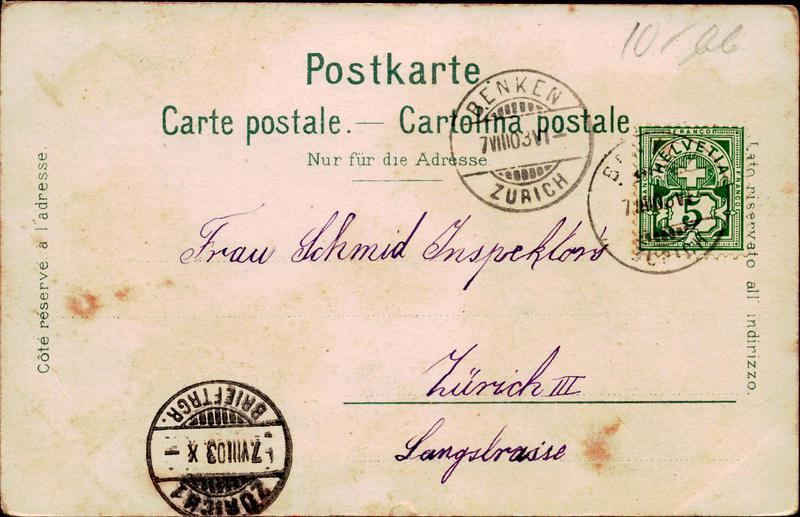 10
Postkarte
Carte postale. — Cartolina postale.
Nur für die Adresse
BENKEN
7VIII03VI—
ZÜRICH
FRANCO
HELVETIA
FRANCO
FRANCO
5
Côté réservé à l'adresse.
Lato riservato all' indirizzo.
Frau Schmid Inspektors
Zürich III
Langstrasse
BRIEFTRGR.
7.VIII03 X
ZÜRICH 1